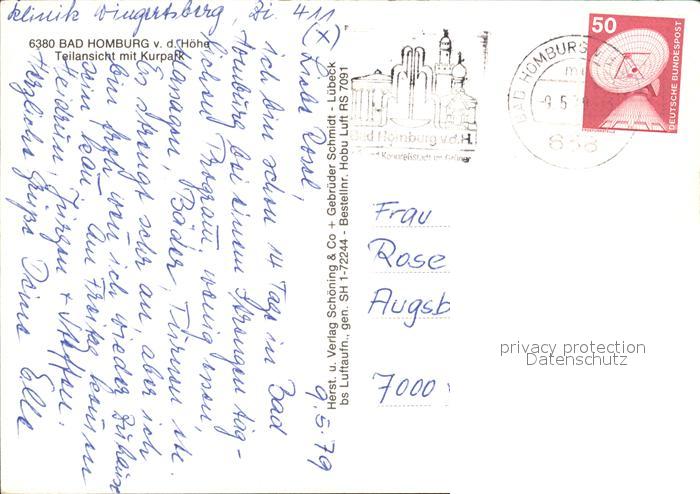 Klinik Wingertsberg, Zi. 411
(X)
6380 BAD HOMBURG v. d. Höhe
Teilansicht mit Kurpark
9.5.79
Liebe Rosel,
ich bin schon 14 Tage in Bad
Homburg bei einem strengen täg-
lichen Program, wenig essen,
Massagen, Bäder, Turnen etc.
Es strengt sehr an, aber ich
bin froh wenn ich wieder Zuhause
sein kann. Am Freitag kommen
Heidrun, Jürgen + Steffen.
Herzliche Grüße Deine Elle
Herst. u. Verlag Schöning & Co + Gebrüder Schmidt - Lübeck
bs Luftaufn., gen. SH 1-72244 - Bestellnr. Hobu Luft RS 7091
Bad Homburg v.d.H.
Kongreßstadt im Grünen
BAD HOMBURG
-9.5.79
638
50
DEUTSCHE BUNDESPOST
Frau
Rose
Augsb
7000
privacy protection
Datenschutz